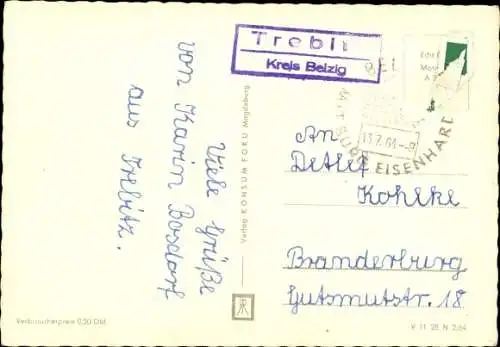 Trebit
Kreis Belzig
BEL
MIT BURG EISENHARD
13.7.64-9
Viele Grüße
von Karin Bosdorf
aus Trebitz.
Verlag KONSUM FOKU Magdeburg
An
Detlef
Kohlke
Branderburg
Gutsmutstr. 18
Verbraucherpreis 0,20 DM
V 11 28 N 2/64